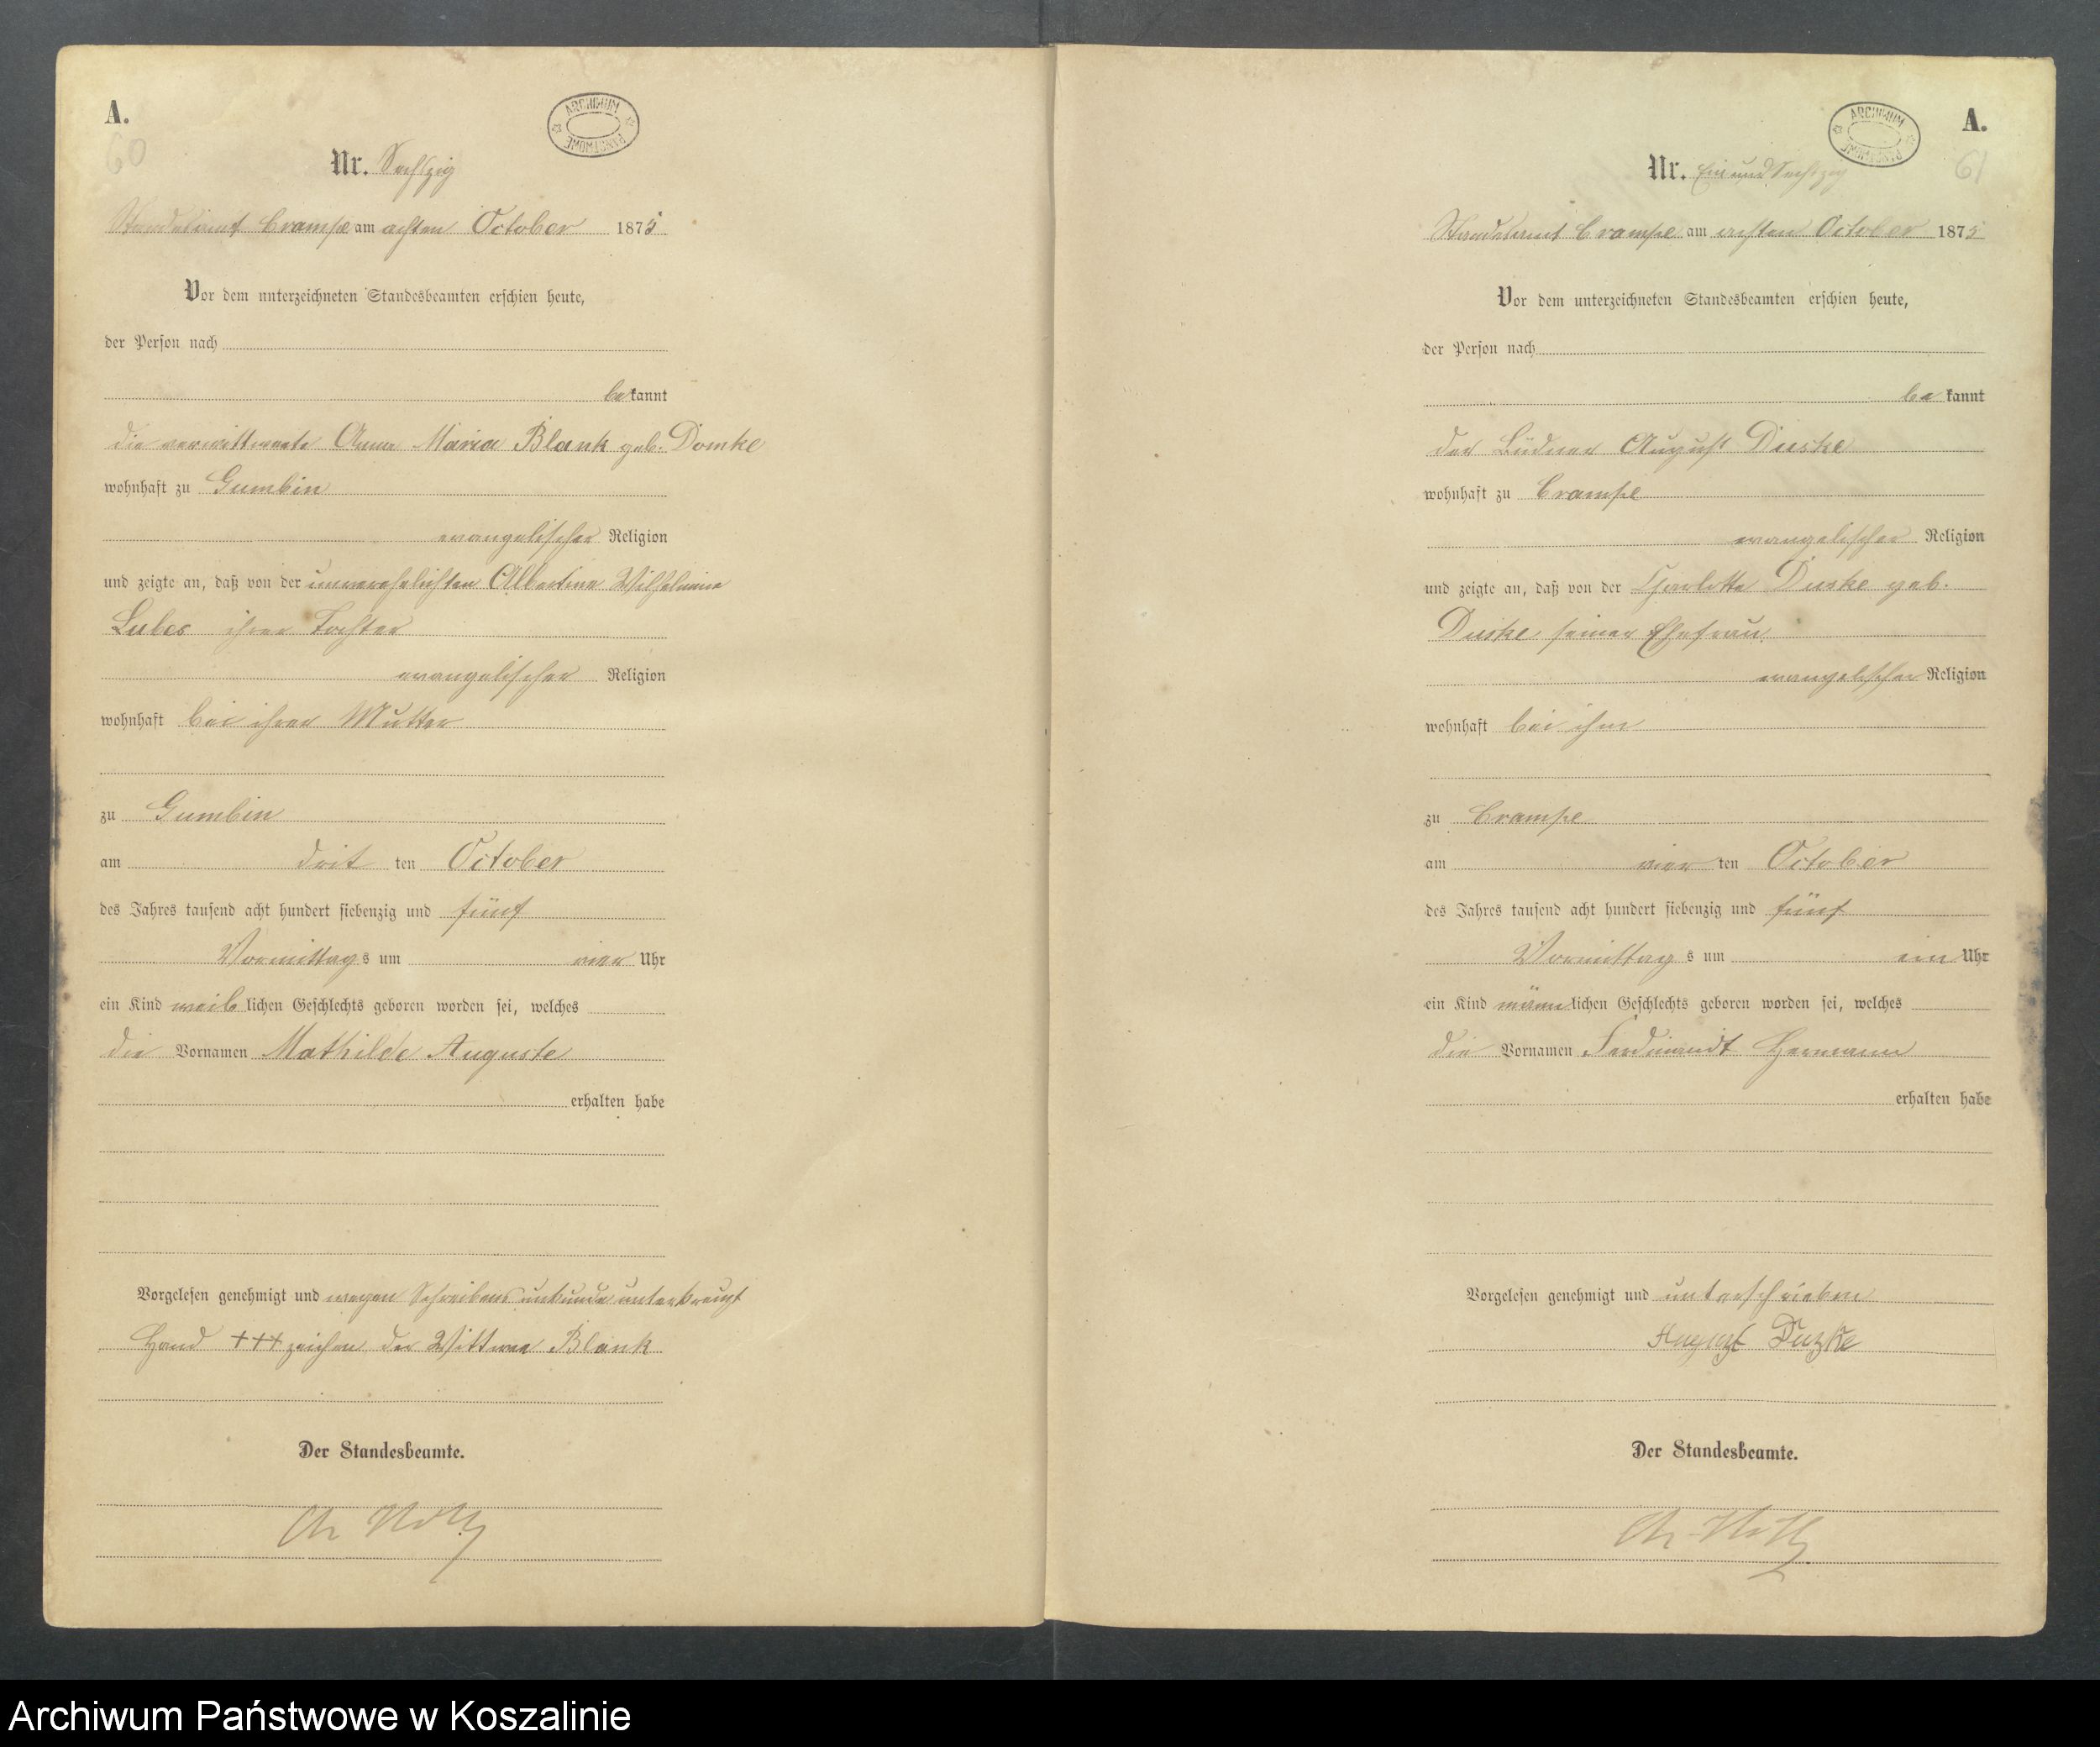 A.
60
ARCHIWUM PAŃSTWOWE
Nr. Sechszig
Standesamt Crampe am achten October 1875
Vor dem unterzeichneten Standesbeamten erschien heute,
der Person nach
bekannt
die verwittwete Anna Maria Blank geb. Domke
wohnhaft zu Gumbin
evangelischer Religion
und zeigte an, daß von der unverehelichten Albertine Wilhelmine
Lubes ihrer Tochter
evangelischer Religion
wohnhaft bei ihrer Mutter
zu Gumbin
am dritten October
des Jahres tausend acht hundert siebenzig und fünf
Vormittags um vier Uhr
ein Kind weiblichen Geschlechts geboren worden sei, welches
die Vornamen Mathilde Auguste
erhalten habe
Vorgelesen genehmigt und wegen Schreibens unkunde unterkreuzt
Hand +++ zeichen der Wittwe Blank
Der Standesbeamte.
A.
61
ARCHIWUM PAŃSTWOWE
Nr. Ein und Sechszig
Standesamt Crampe am achten October 1875
Vor dem unterzeichneten Standesbeamten erschien heute,
der Person nach
bekannt
der Büdner August Duske
wohnhaft zu Crampe
evangelischer Religion
und zeigte an, daß von der Charlotte Duske geb.
Duske seiner Ehefrau
evangelischer Religion
wohnhaft bei ihm
zu Crampe
am vierten October
des Jahres tausend acht hundert siebenzig und fünf
Vormittags um ein Uhr
ein Kind männlichen Geschlechts geboren worden sei, welches
die Vornamen Ferdinandt Hermann
erhalten habe
Vorgelesen genehmigt und unterschrieben
August Duzke
Der Standesbeamte.
Archiwum Państwowe w Koszalinie